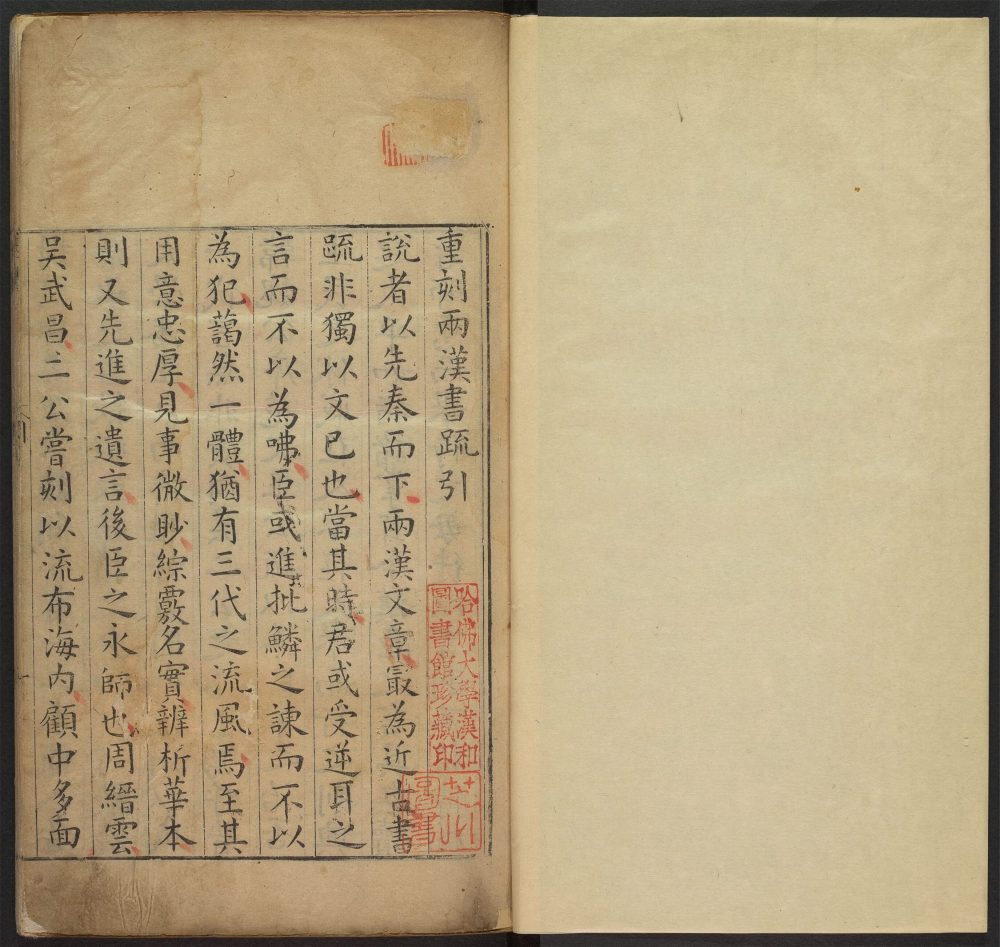 重刻兩漢書疏引
說者以先秦而下兩漢文章㝡為近古書
疏非獨以文已也當其時君或受逆耳之
言而不以為咈臣或進批鱗之諫而不以
為犯藹然一體猶有三代之流風焉至其
用意忠厚見事微眇綜覈名實辨析華本
則又先進之遺言後臣之永師也周縉雲
吴武昌二公嘗刻以流布海内顧中多面
哈佛大學漢和
圖書館珍藏印
芝川
圖書